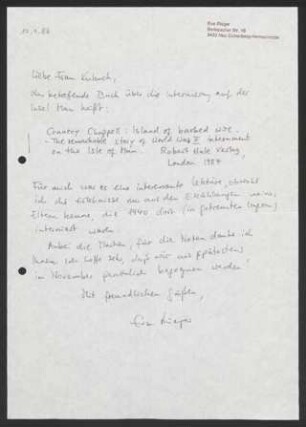 Eva Rieger
10.4.88
Liebe Frau Kubuch,
das betreffende Buch über die Internierung auf der
Insel Man heißt:
Connery Chappell: Island of barbed wire.
- The remarkable story of World War II internment
on the Isle of Man. Robert Hale Verlag,
London 1984
Für mich war es eine interessante Lektüre, obwohl
ich die Erlebnisse nur aus den Erzählungen meiner
Eltern kenne, die 1940 dort (in getrennten Lagern)
interniert waren.
Anbei die Marken, für die Noten danke ich
Ihnen. Ich hoffe sehr, daß wir uns spätestens
im November persönlich begegnen werden!
Mit freundlichen Grüßen,
Eva Rieger